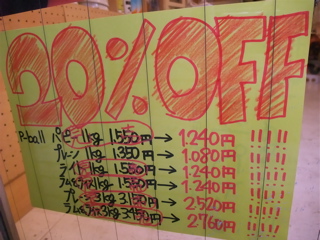 20%OFF
P-ball パピー 1kg 1.550円→1.240円 !!!!!
プレーン 1kg 1.350円→1.080円 !!!!!
ライト 1kg 1.550円→1.240円 !!!!!
ラム&ライス1kg 1.550円→1.240円 !!!!!
プレーン3kg 3.150円→2520円 !!!!!
ラム&ライス3kg 3.450円→2760円 !!!!!